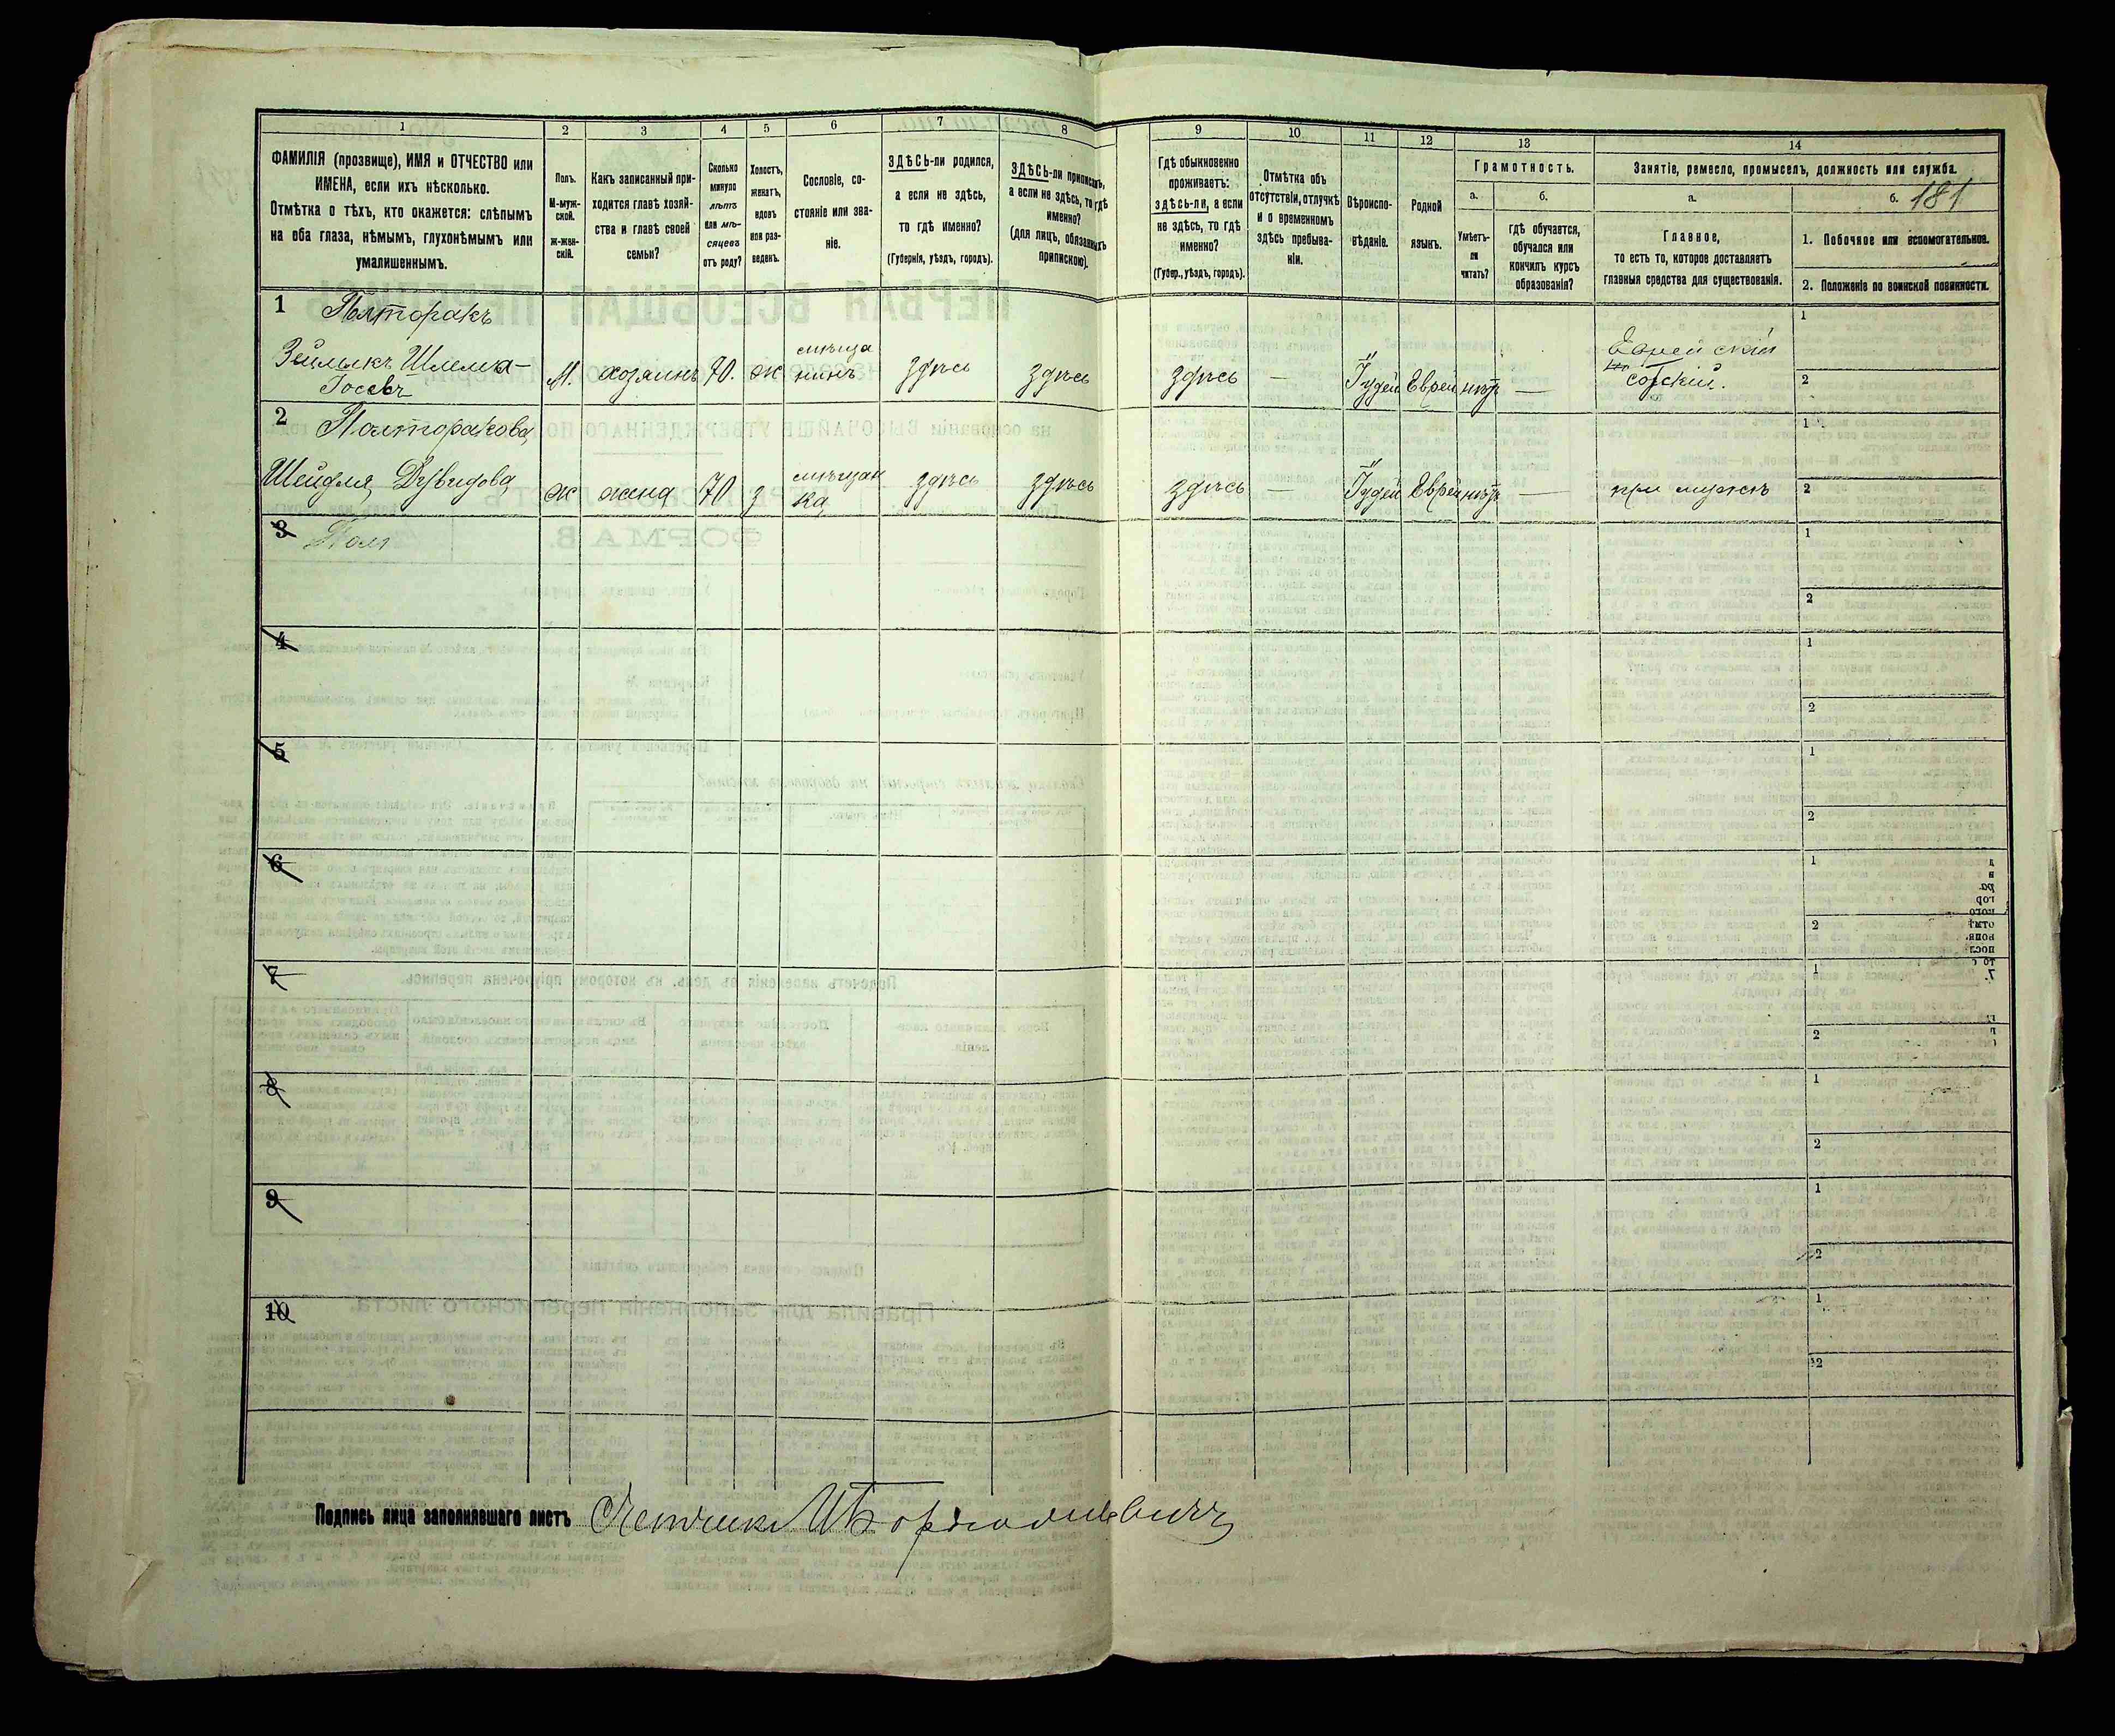 181
1
2
3
4
5
6
7
8
9
10
11
12
13
14
ФАМИЛІЯ (прозвище), ИМЯ и ОТЧЕСТВО или
ИМЕНА, если ихъ нѣсколько.
Отмѣтка о тѣхъ, кто окажется: слѣпымъ
на оба глаза, нѣмымъ, глухонѣмымъ или
умалишеннымъ.
Полъ.
М-муж-
ской.
Ж-жен-
скій.
Какъ записанный при-
ходится главѣ хозяй-
ства и главѣ своей
семьи?
Сколько
минуло
лѣтъ
или мѣ-
сяцевъ
отъ роду?
Холостъ,
женатъ,
вдовъ
или раз-
веденъ.
Сословіе, со-
стояніе или зва-
ніе.
ЗДѢСЬ-ли родился,
а если не здѣсь,
то гдѣ именно?
(Губернія, уѣздъ, городъ).
ЗДѢСЬ-ли приписанъ,
а если не здѣсь, то гдѣ
именно?
(для лицъ, обязанныхъ
припискою).
Гдѣ обыкновенно
проживаетъ:
здѣсь-ли, а если
не здѣсь, то гдѣ
именно?
(Губер., уѣздъ, городъ).
Отмѣтка объ
отсутствіи, отлучкѣ
и о временномъ
здѣсь пребыва-
ніи.
Вѣроиспо-
вѣданіе.
Родной
языкъ.
Грамотность.
а.
Умѣетъ-
ли
читать?
б.
гдѣ обучается,
обучался или
кончилъ курсъ
образованія?
Занятіе, ремесло, промыселъ, должность или служба.
а.
Главное,
то есть то, которое доставляетъ
главныя средства для существованія.
б.
1. Побочное или вспомогательное.
2. Положеніе по воинской повинности.
1 Полторакъ
Шлема-
Іосевъ М. хозяинъ 70. ж мѣща
нинъ здѣсь здѣсь здѣсь — Іудей Еврей нѣтъ — Еврейскій
2 Полторакова
Шейдля Дувидова ж жена 70 з мѣщан
ка здѣсь здѣсь здѣсь — Іудей Еврей нѣтъ — при мужѣ
3 Полт
4
5
6
7
8
9
10
Подпись лица заполнявшаго листъ